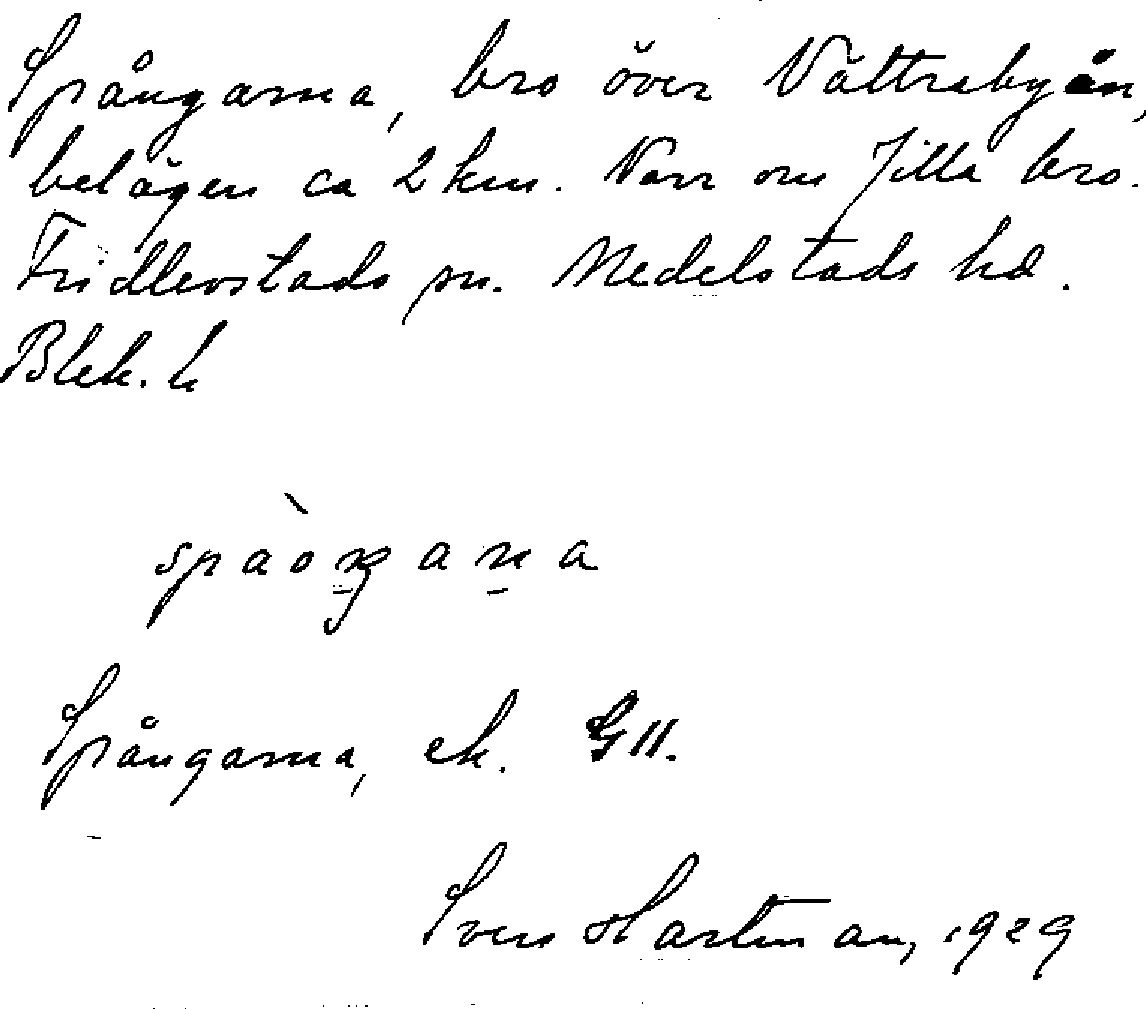 Spångarna, bro över Vättrabyån,
belägen ca 2 km. Norr om Jilla bro.
Fridlevstads sn. Medelstads hd.
Blek. l.
spàoŋana
Spångarna, ek. G11.
Sven Hartman, 1929